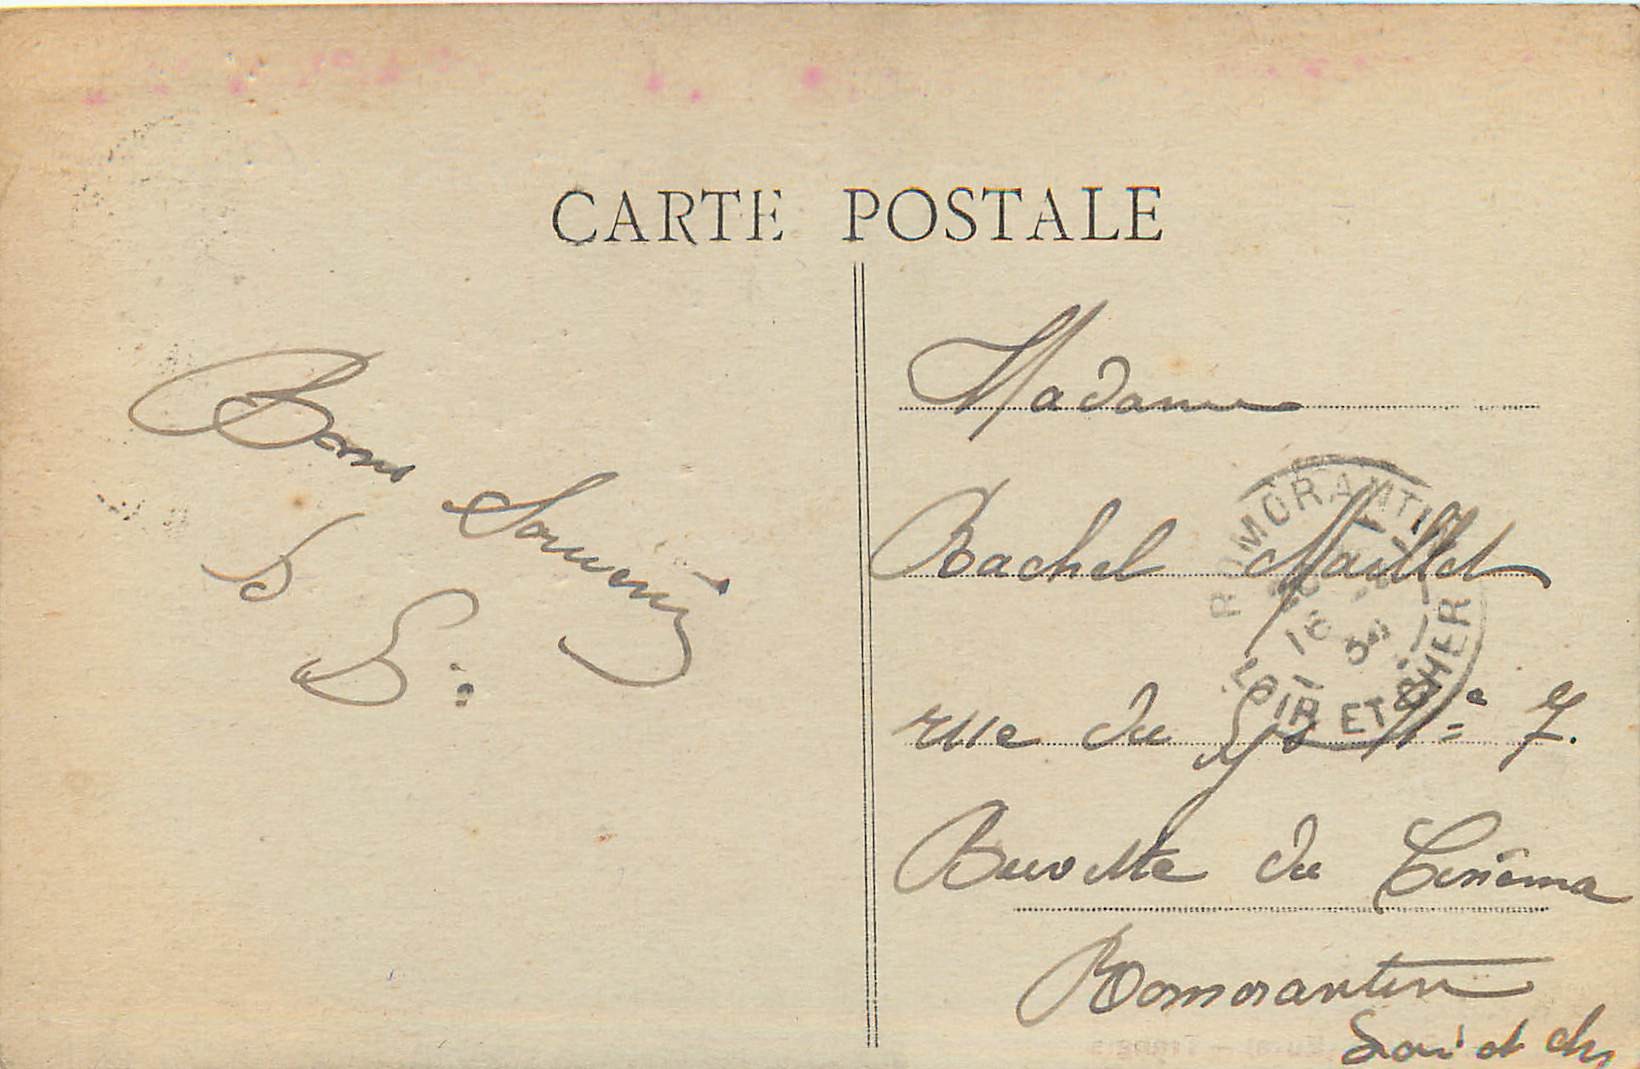 CARTE POSTALE
Bons Souvenirs
Madame
Rachel Maillet
rue du N° 7.
Buvette du Cinéma
Romorantin
Loir et Cher
ROMORANTIN
16
LOIR ET CHER